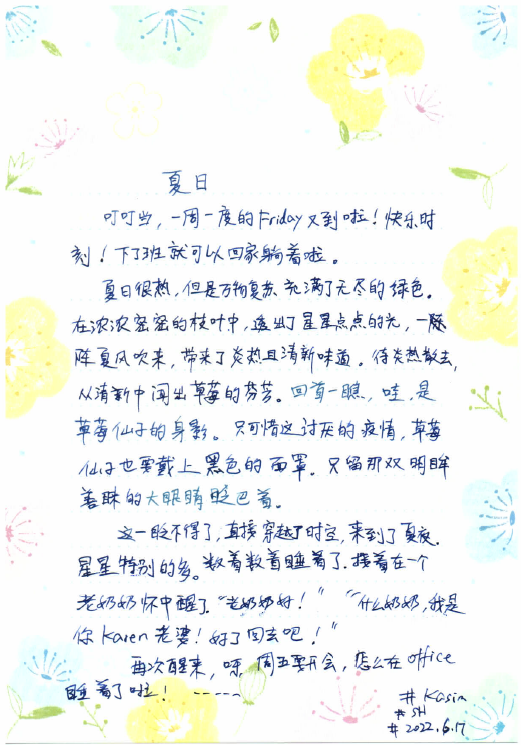 夏日
叮叮当，一周一度的Friday又到啦！快乐时
刻！下了班就可以回家躺着啦。
夏日很热，但是万物复苏 充满了无尽的绿色。
在浓浓密密的枝叶中，透出了星星点点的光，一阵
阵夏风吹来，带来了炎热且清新味道。待炎热散去，
从清新中闻出草莓的芬芳。回首一瞧，哇，是
草莓仙子的身影。只可惜这讨厌的疫情，草莓
仙子也要戴上黑色的面罩。只留那双明眸
善睐的大眼睛眨巴着。
这一眨不得了，直接穿越了时空，来到了夏夜。
星星特别的多。数着数着睡着了。接着在一个
老奶奶怀中醒了。“老奶奶好！” “什么奶奶，我是
你Karen老婆！好了回去吧！”
再次醒来，呀，周五要开会，怎么在office
睡着了啦！-----
# Kasin
# SH
# 2022.6.17